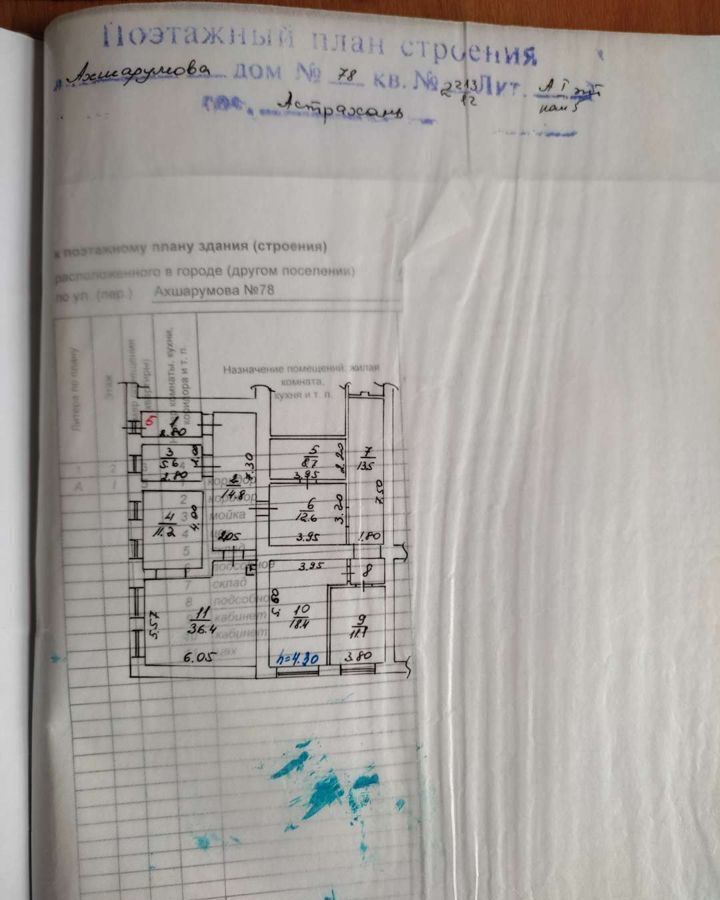 Поэтажный план строения
Ахшарумова дом № 78 кв. № Лит. А I эт
гор. Астрахань пом 5
к поэтажному плану здания (строения)
расположенного в городе (другом поселении)
по ул. (пер.) Ахшарумова №78
Литера по плану
этаж
комнаты, кухни, коридора и т. п.
Назначение помещений: жилая
комната,
кухня и т. п.
1 2 3 4
А 1 1 коридор
2 коридор
3 мойка
4
5
6 подсобное
7 склад
8 подсобное
9 кабинет
кабинет
1
2.80
3
5.6
2.80
4
11.2
4.00
2
14.8
7.30
2.05
5
8.7
2.20
3.95
6
12.6
3.20
3.95
7
13.5
7.50
1.80
8
9
3.80
10
18.4
3.95
4.60
h=4.20
11
36.4
5.57
6.05